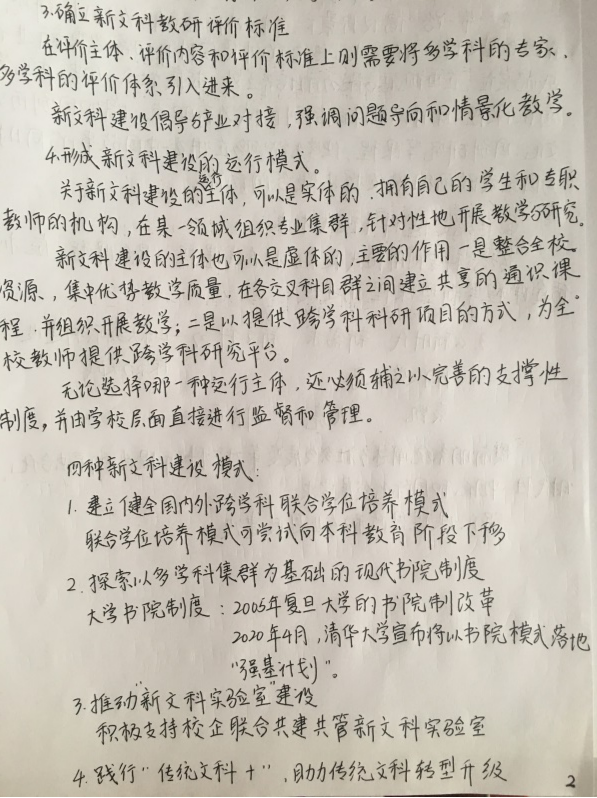 3.确立新文科教研评价标准
在评价主体、评价内容和评价标准上则需要将多学科的专家、
多学科的评价体系引入进来。
新文科建设倡导与产业对接,强调问题导向和情景化教学。
4.形成新文科建设的运行模式。
关于新文科建设的运行主体,可以是实体的、拥有自己的学生和专职
教师的机构,在某一领域组织专业集群,针对性地开展教学与研究。
新文科建设的主体也可以是虚体的,主要的作用一是整合全校
资源,集中优势教学质量,在各交叉科目群之间建立共享的通识课
程,并组织开展教学;二是以提供跨学科科研项目的方式,为全
校教师提供跨学科研究平台。
无论选择哪一种运行主体,还必须辅之以完善的支撑性
制度,并由学校层面直接进行监督和管理。
四种新文科建设模式:
1.建立健全国内外跨学科联合学位培养模式
联合学位培养模式可尝试向本科教育阶段下移
2.探索以多学科集群为基础的现代书院制度
大学书院制度:2005年复旦大学的书院制改革
2020年4月,清华大学宣布将以书院模式落地
“强基计划”。
3.推动“新文科实验室”建设
积极支持校企联合共建共管新文科实验室
4.践行“传统文科+”,助力传统文科转型升级
2